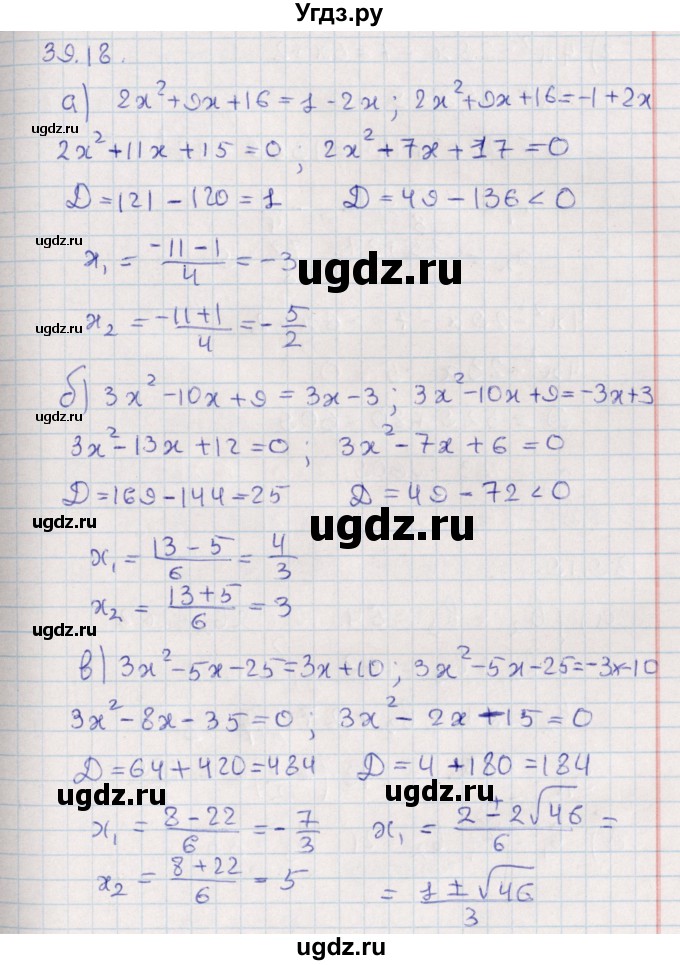 Угдз.ру
39.18.
а) 2x²+9x+16=1-2x; 2x²+9x+16=-1+2x
ugdz.ru
2x²+11x+15=0; 2x²+7x+17=0
D=121-120=1 D=49-136<0
ugdz.ru
x₁ = (-11-1)/4 = -3
ugdz.ru
x₂ = (-11+1)/4 = -5/2
ugdz.ru
б) 3x²-10x+9=3x-3; 3x²-10x+9=-3x+3
ugdz.ru
3x²-13x+12=0; 3x²-7x+6=0
D=169-144=25 D=49-72<0
ugdz.ru
ugdz.ru
x₁ = (13-5)/6 = 4/3
x₂ = (13+5)/6 = 3
ugdz.ru
в) 3x²-5x-25=3x+10; 3x²-5x-25=-3x-10
3x²-8x-35=0; 3x²-2x-15=0
D=64+420=484 D=4+180=184
ugdz.ru
ugdz.ru
x₁ = (8-22)/6 = -7/3 x₁ = (2±2√46)/6 =
x₂ = (8+22)/6 = 5 = (1±√46)/3
ugdz.ru